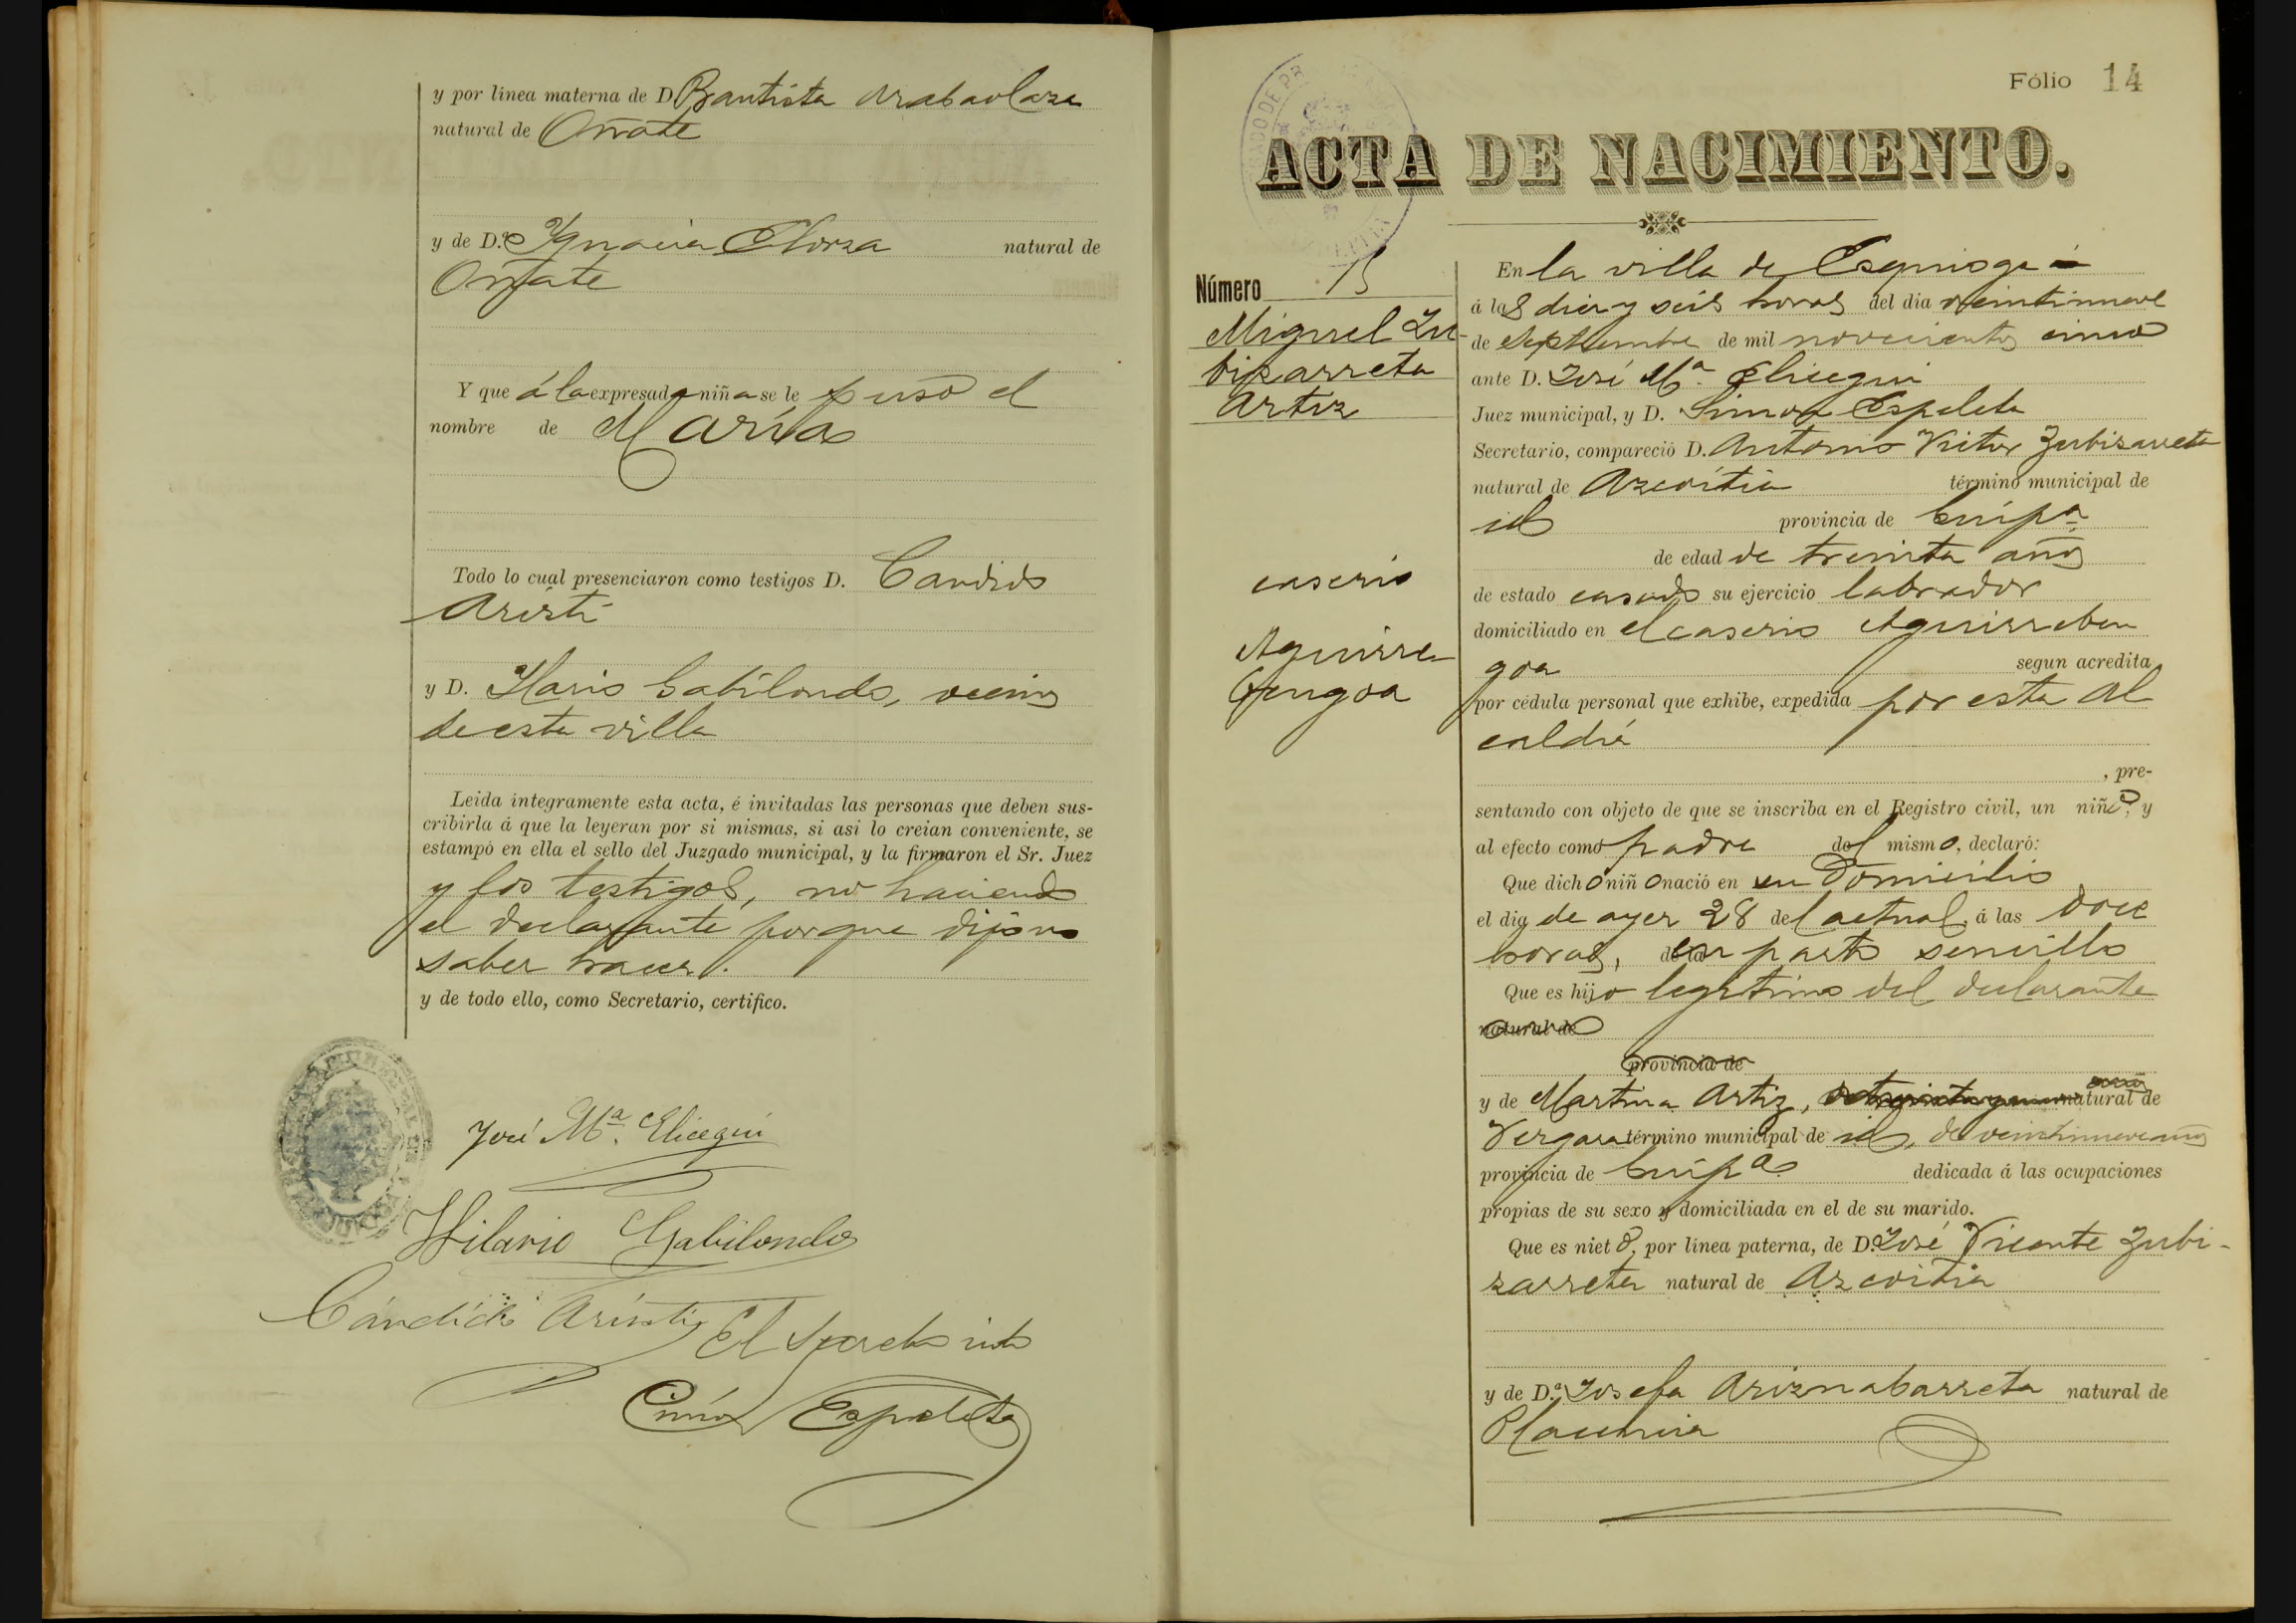 y por línea materna de D Bautista Arabaolaza
natural de Oñate
y de D.ª Ygnacia Elorza natural de
Oñate
Y que á la expresada niña se le puso el
nombre de María
Todo lo cual presenciaron como testigos D. Candido
Aristi
y D. Ylario Gabilondo, vecinos
de esta villa
Leida íntegramente esta acta, é invitadas las personas que deben sus-
cribirla á que la leyeran por si mismas, si asi lo creian conveniente, se
estampó en ella el sello del Juzgado municipal, y la firmaron el Sr. Juez
y los testigos, no haciendo
el declarante porque dijo no
saber hacer.
y de todo ello, como Secretario, certifico.
José Mª. Elicegui
Hilario Gabilondo
Cándido Aristi
El Secretario
Simón Espeleta
Fólio 14
ACTA DE NACIMIENTO.
Número 15
Miguel Zu-
bizarreta
Artiz
caserio
Aguirre
Gengoa
En la villa de Esquioga á
á las diez y seis horas del dia veintinueve
de Septiembre de mil novecientos cinco
ante D. José Mª. Elicegui
Juez municipal, y D. Simon Espeleta
Secretario, compareció D. Antonio Vitor Zubizarreta
natural de Azcoitia término municipal de
id provincia de Guipª
de edad de treinta años
de estado casado su ejercicio labrador
domiciliado en el caserio Aguirreben
goa segun acredita
por cédula personal que exhibe, expedida por esta Al
caldía
, pre-
sentando con objeto de que se inscriba en el Registro civil, un niño, y
al efecto como padre del mismo, declaró:
Que dicho niño nació en su domicilio
el dia de ayer 28 del actual, á las doce
horas, en parto sencillo
Que es hijo legitimo del declarante
natural de
provincia de
y de Martina Artiz, natural de
Vergara término municipal de id, de veintinueve años
provincia de Guipª dedicada á las ocupaciones
propias de su sexo y domiciliada en el de su marido.
Que es nieto, por línea paterna, de D. José Vicente Zubi-
zarreta natural de Azcoitia
y de D.ª Josefa Ariznabarreta natural de
Placencia